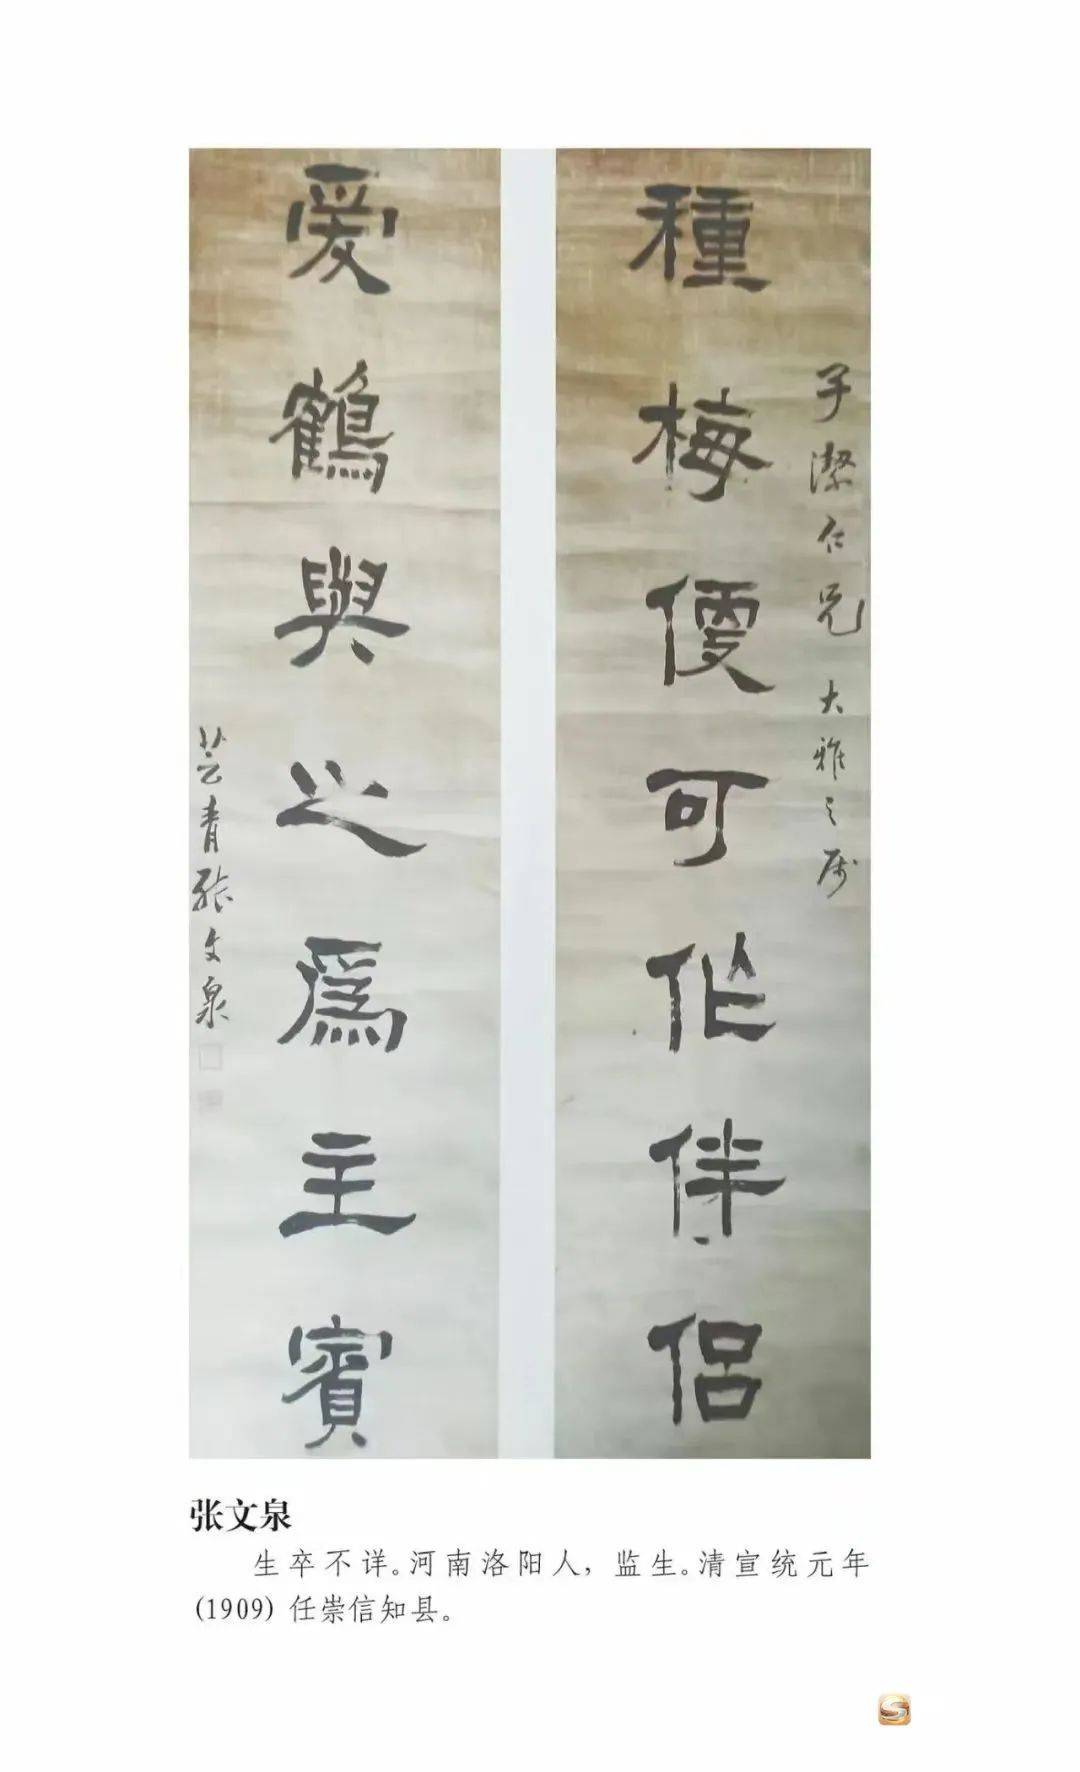 子潔仁兄大雅之属
種梅便可作伴侶
愛鶴與之爲主賓
芸青張文泉
张文泉
生卒不详。河南洛阳人，监生。清宣统元年
(1909) 任崇信知县。